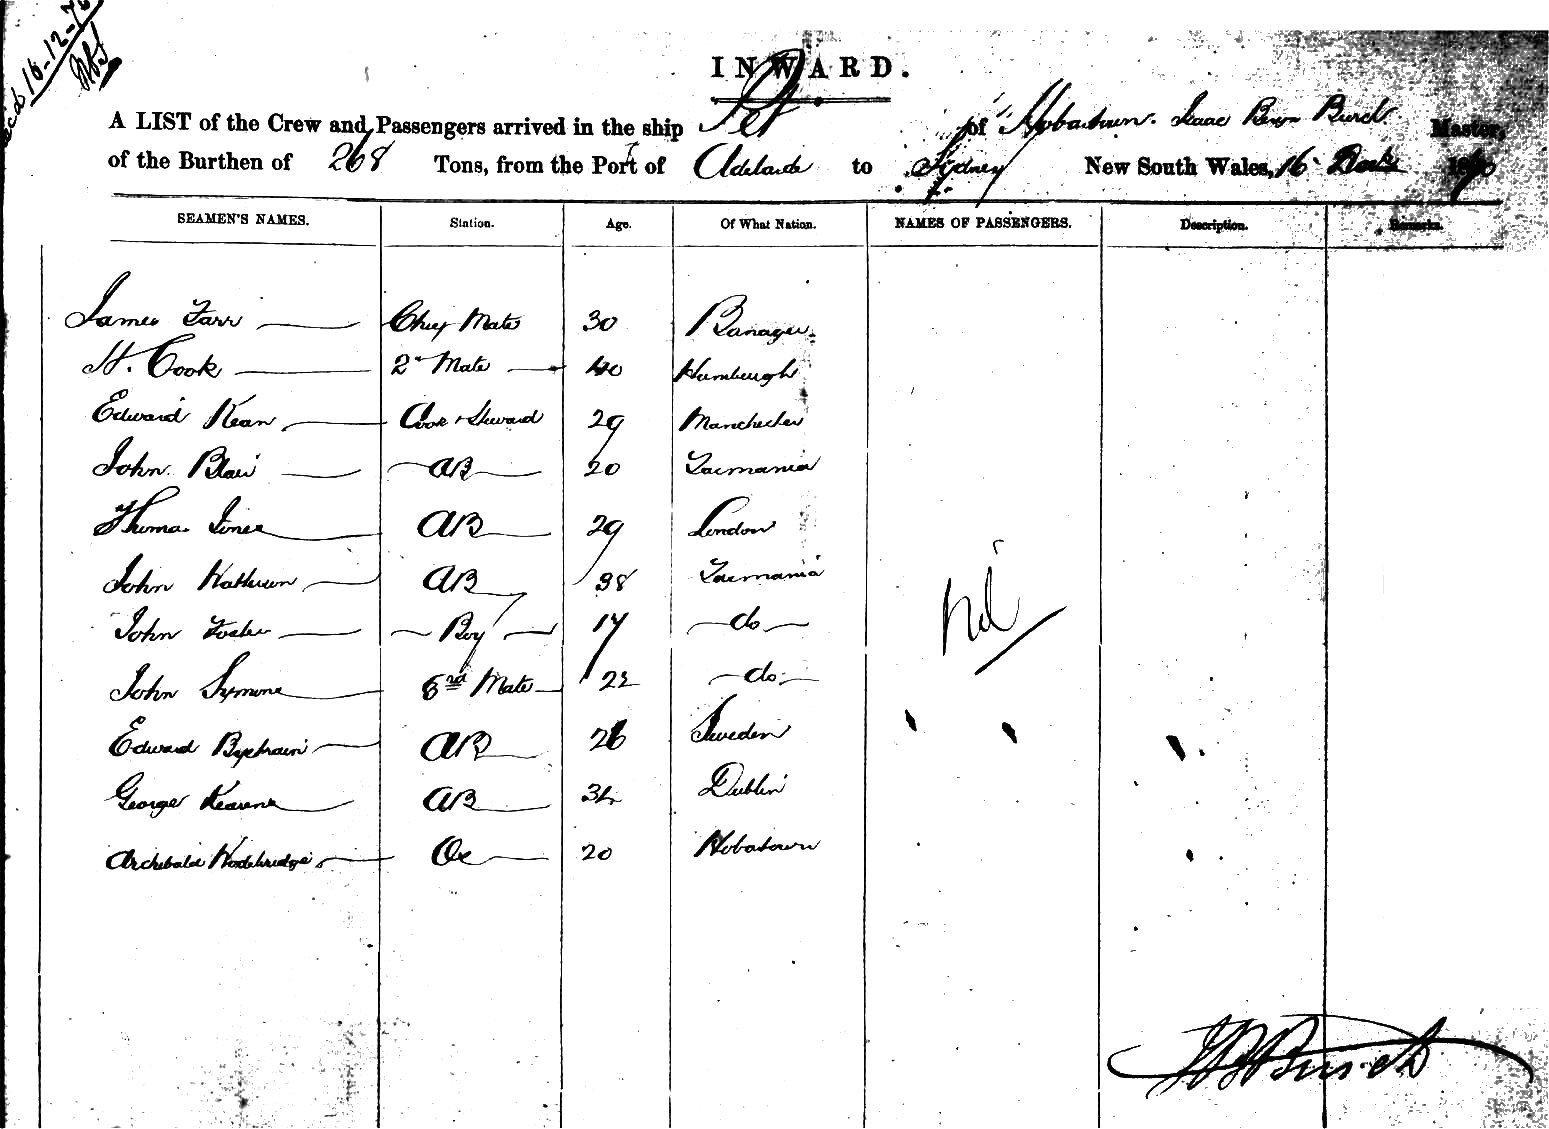 16-12-70
INWARD.
A LIST of the Crew and Passengers arrived in the ship Pet of Hobartown. Isaac Burch Master,
of the Burthen of 268 Tons, from the Port of Adelaide to Sydney New South Wales, 16 1870
SEAMEN'S NAMES. Station. Age. Of What Nation. NAMES OF PASSENGERS. Description. Remarks.
James Farr Chief Mate 30
H. Cook 2 Mate 40 Hamburgh
Edward Kean Cook + Steward 29 Manchester
John Blair AB 20 Tasmania
Thomas Jones AB 29 London
John AB 38 Tasmania
John Foster Boy 17 do
John Symons 3rd Mate 22 do
Edward AB 26 Sweden
George Kearens AB 34 Dublin
Archibald 20 Hobatown
Nil
Burch